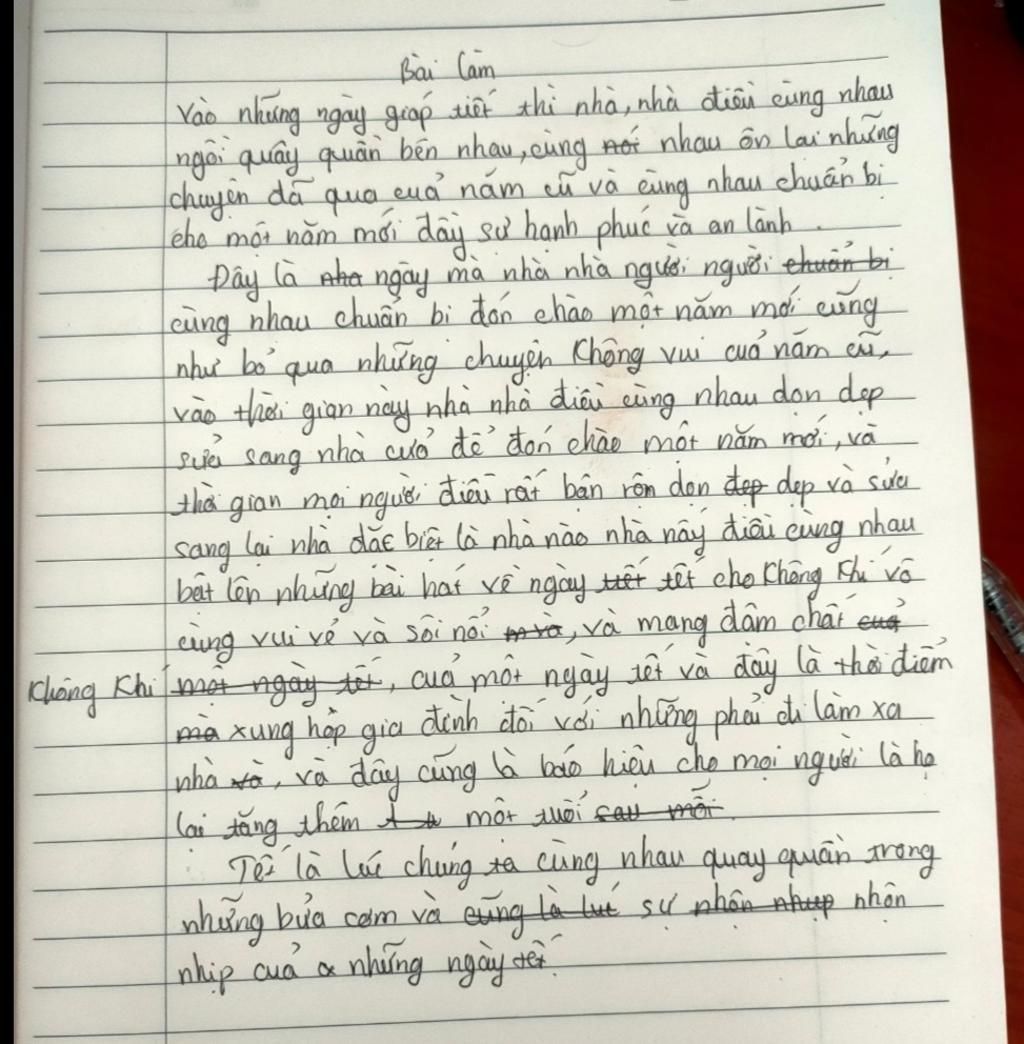 Bài làm
Vào những ngày giáp tiết thì nhà, nhà điều cùng nhau
ngồi quây quần bên nhau, cùng nói nhau ôn lại những
chuyện đã qua cuả năm cũ và cùng nhau chuẩn bị
cho một năm mới đầy sự hạnh phúc và an lành.
Đây là nha ngày mà nhà nhà người người chuẩn bị
cùng nhau chuẩn bị đón chào một năm mới cũng
như bỏ qua những chuyện không vui cuả năm cũ,
vào thời gian này nhà nhà điều cùng nhau dọn dẹp
sửa sang nhà cửa để đón chào một năm mới, và
thời gian mọi người điều rất bận rộn dọn đẹp dẹp và sửa
sang lại nhà đăc biệt là nhà nào nhà nấy điều cùng nhau
bật lên những bài hát về ngày tiết tết cho không khí vô
cùng vui vẻ và sôi nổi, và mang đậm chất cuả
không khí một ngày tết, cuả một ngày tết và đây là thời điểm
mà xung hộp gia đình đối với những phải đi làm xa
nhà và, và đây cũng là báo hiệu cho mọi người là họ
lại tăng thêm một tuổi sau mỗi
Tết là lúc chúng ta cùng nhau quay quần trong
những bửa cơm và cũng là lúc sự nhộn nhịp nhộn
nhịp cuả những ngày tết.